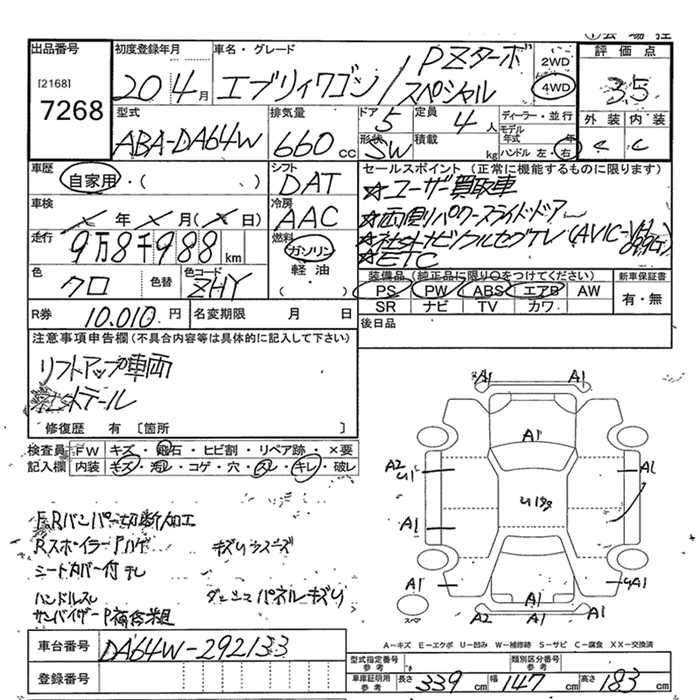 出品番号 初度登録年月 車名・グレード 評価点
[2168]
7268
20 年 4 月 エブリィワゴン / PZターボ スペシャル 2WD 4WD 3.5
型式 排気量 ドア 定員 ディーラー・並行 外装 内装
ABA-DA64W 660 cc 5 4 人 モデル年式 年 C C
形状 SW 積載 kg ハンドル 左・右
車歴 自家用・( ) シフト DAT セールスポイント (正常に機能するものに限ります)
☆ユーザー買取車
車検 年 月 ( 日) 冷房 AAC
☆両側パワースライドドア
走行 9万8千988 km 燃料 ガソリン
☆社外ナビフルセグTV (AVIC-
☆ETC
軽油
・( )
色 クロ 色替 色コード ZHY
装備品 (純正品に限り○をつけてください) 新車保証書
PS PW ABS エアB AW 有・無
SR ナビ TV カワ
R券 10.010 円 名変期限 月 日 後日品
注意事項申告欄 (不具合内容等は具体的に記入して下さい)
リフトアップ車両
社外テール
修復歴 有 [箇所 ]
検査員 FW キズ・飛石・ヒビ割・リペア跡・×要
記入欄 内装 キズ・汚レ・コゲ・穴・スレ・キレ・破レ
A1 A1
A1
A2 U1 A1
A1
A1 A1 A1
A1
F,Rバンパー切断加工
Rスポイラーハゲ キズ
シートカバー付
ハンドルスレ パネルキズ
サンバイザー
スマ
車台番号 DA64W-292133
登録番号
A-キズ E-エクボ U-凹み W-補修跡 S-サビ C-腐食 XX-交換済
型式指定番号 参考 類別区分番号 参考
車庫証明用 参考 長さ 339 cm 幅 147 cm 高さ 183 cm